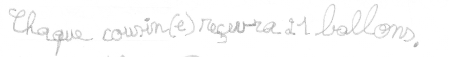 Chaque cousin(e) reçevra 21 ballons.